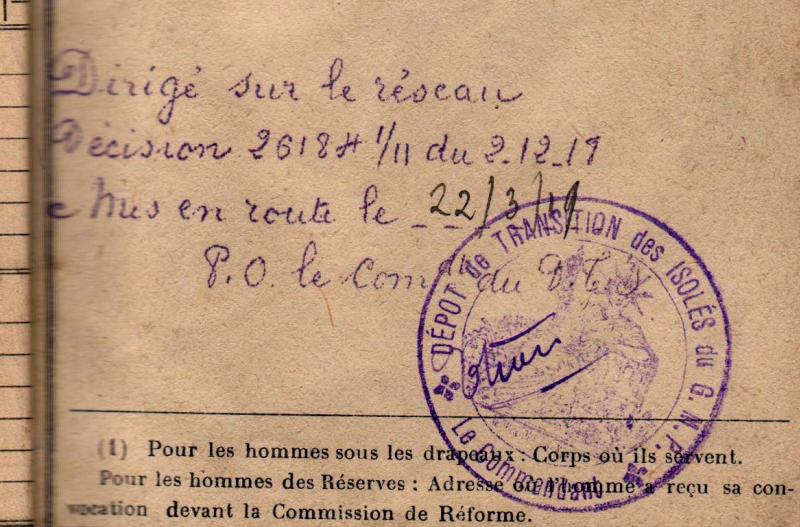 Dirigé sur le réseau
Décision 2618 H 1/11 du 2.12.19
Mis en route le 22/3/19
P.O. le Comdt du D.T.I.
DÉPOT de TRANSITION des ISOLÉS du G.M.P.
Le Commandant
(1) Pour les hommes sous les drapeaux : Corps où ils servent.
Pour les hommes des Réserves : Adresse où l'homme a reçu sa con-
vocation devant la Commission de Réforme.